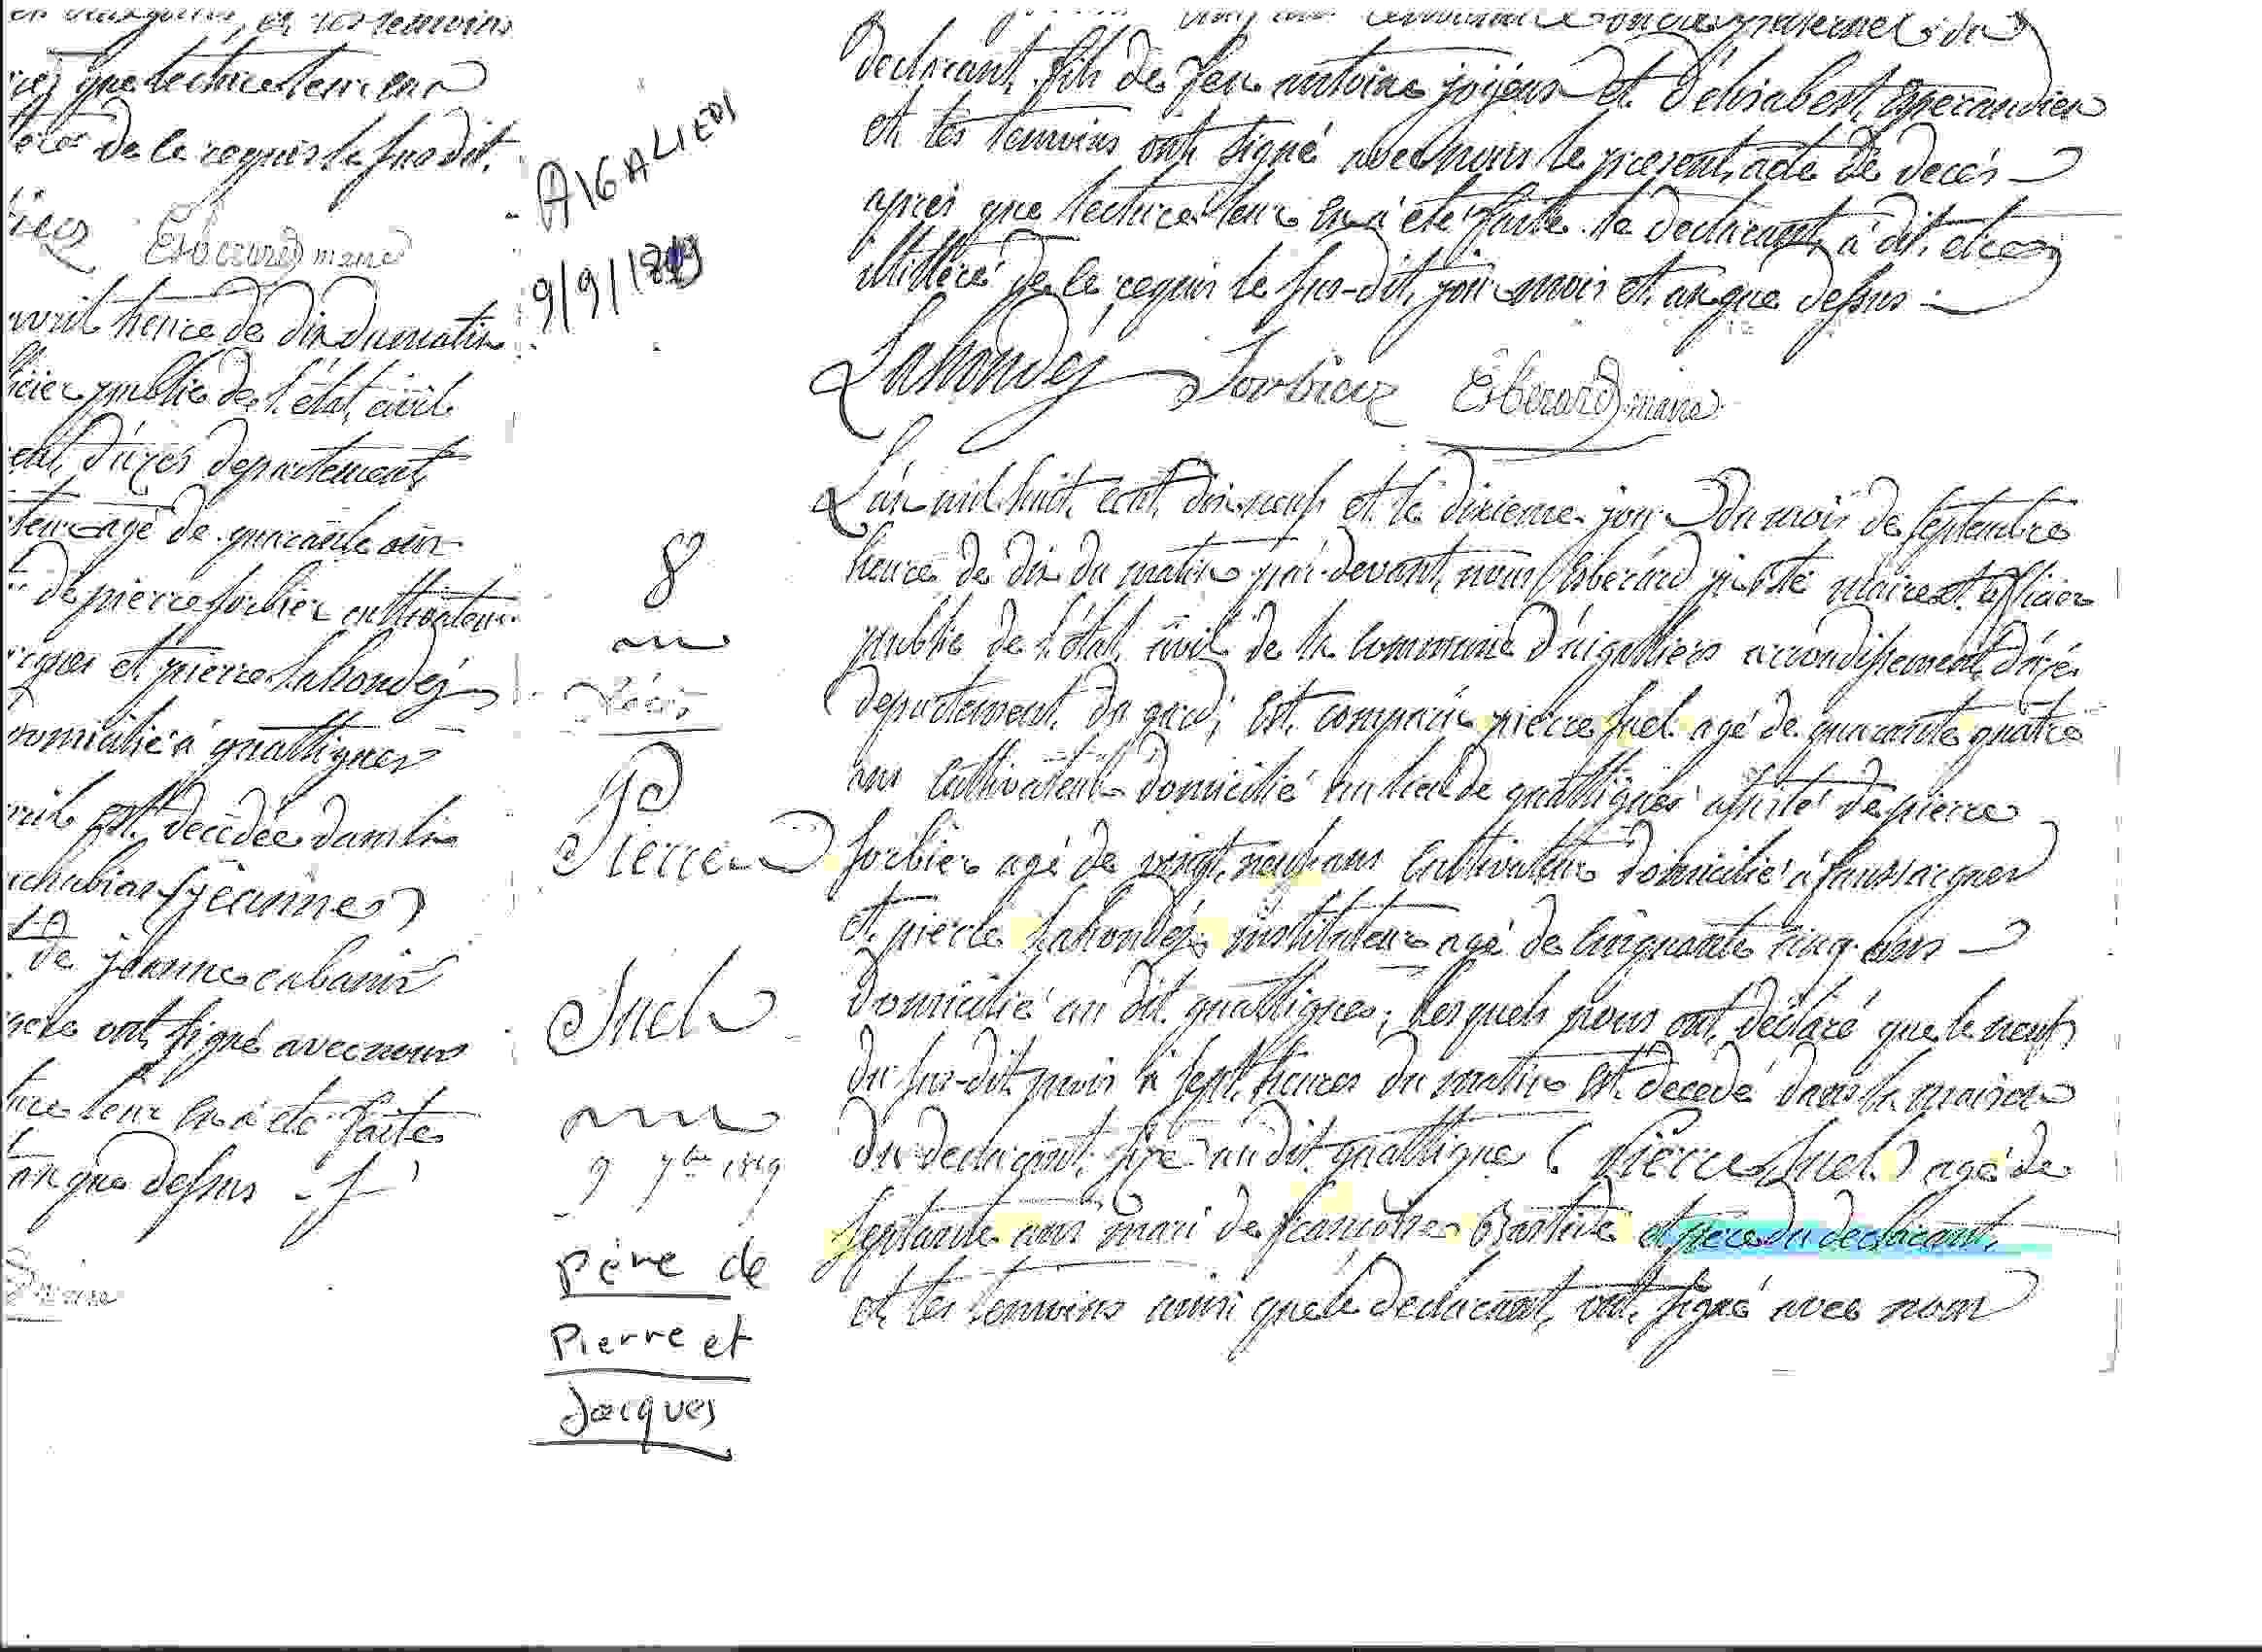 et les temoins
que lecture leur en a
de le requis le sus dit.
Esberard maire
avril heure de dix du matin
officier public de l'état civil
d'uzès departement
agé de quarante ans
de pierre sorbier cultivateur
et pierre Lahondés
domicilié à gnattigues
avril est décédée dans la
(jeanne)
de jeanne cabanis
ont signé avec nous
leur en a été faite
an que dessus
AIGALIERS
9/9/1819
8
Décés
9d
Pierre
Suel
9 7bre 1819
père de
Pierre et
Jacques
paternel du
declarant, fils de feu antoine joyeux et d'elisabeth Esperandieu
et les temoins ont signé avec nous le present acte de decés
après que lecture leur en a été faite. le declarant a dit etre
illittéré de le requis le sus-dit, jour mois et an que dessus
Lahondés Sorbier Esberard maire
L'an mil huit cent dix neuf et le dixieme jour du mois de septembre
heure de dix du matin par-devant nous Esberard maire et officier
public de l'état civil de la commune d'aigalliers arrondissement d'uzés
departement du gard, est comparu pierre suel agé de quarante quatre
ans cultivateur domicilié au lieu de gnattigues assisté de pierre
sorbier agé de vingt neuf ans cultivateur domicilié à faussargues
et pierre Lahondés instituteur agé de cinquante cinq ans
domicilié au dit gnattigues; lesquels nous ont déclaré que le neuf
du sus-dit mois à sept heures du matin est decedé dans la maison
du declarant, sise au dit gnattigues (Pierre Suel) agé de
septante ans mari de françoise Bastide et père du declarant,
et les temoins ainsi que le declarant, ont signé avec nous